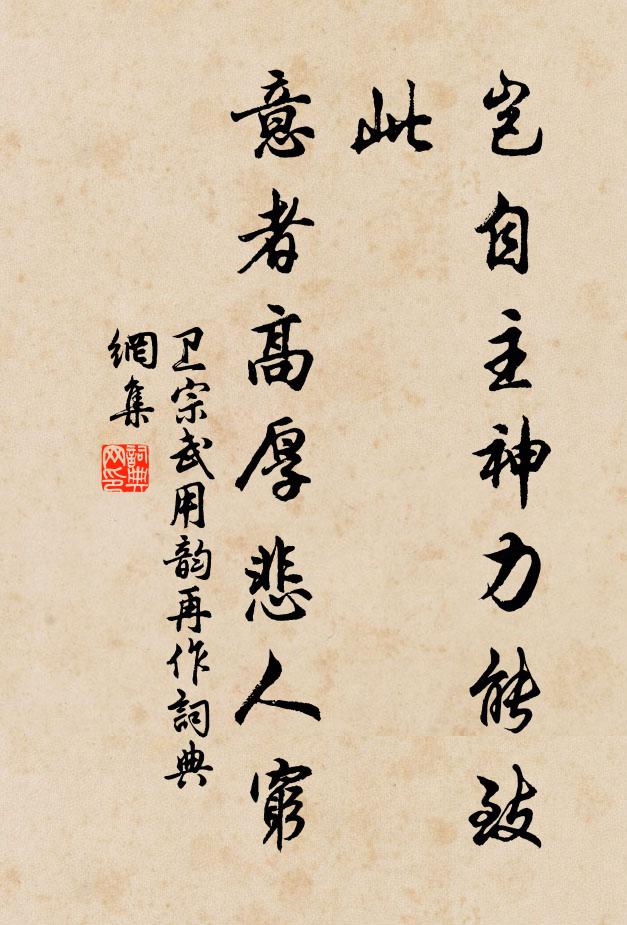 岂自主神力能致
此
意者高厚悲人窮
卫宗武用韵再作詞典
網集
詞典
网印